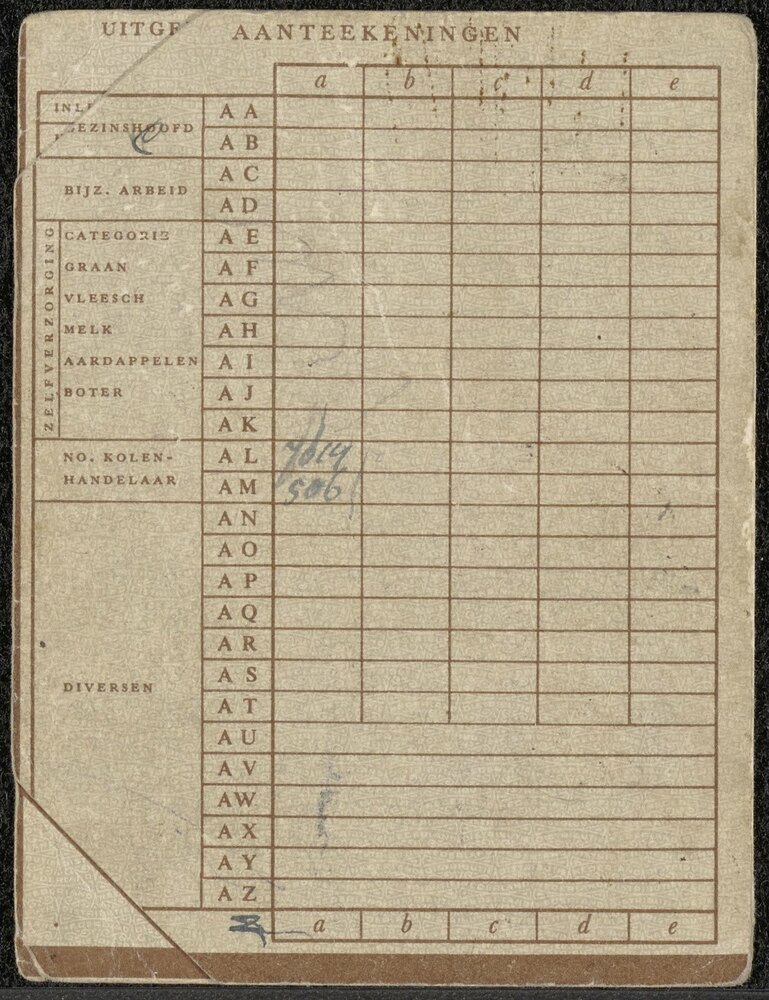 UITGE AANTEEKENINGEN
a b c d e
INL
GEZINSHOOFD
A A
A B
BIJZ. ARBEID
A C
A D
ZELFVERZORGING
CATEGORIE A E
GRAAN A F
VLEESCH A G
MELK A H
AARDAPPELEN A I
BOTER A J
A K
NO. KOLEN- A L
HANDELAAR A M 506
A N
A O
A P
A Q
A R
DIVERSEN A S
A T
A U
A V
A W
A X
A Y
A Z
a b c d e